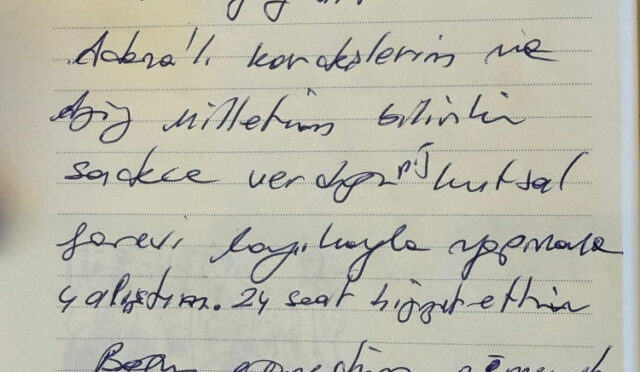 Adana'lı kardeşlerim ve
Aziz Milletim bilinki
sadece verdiğiniz kutsal
görevi layıkıyla yapmaya
çalıştım. 24 saat hizmet ettim
Ben